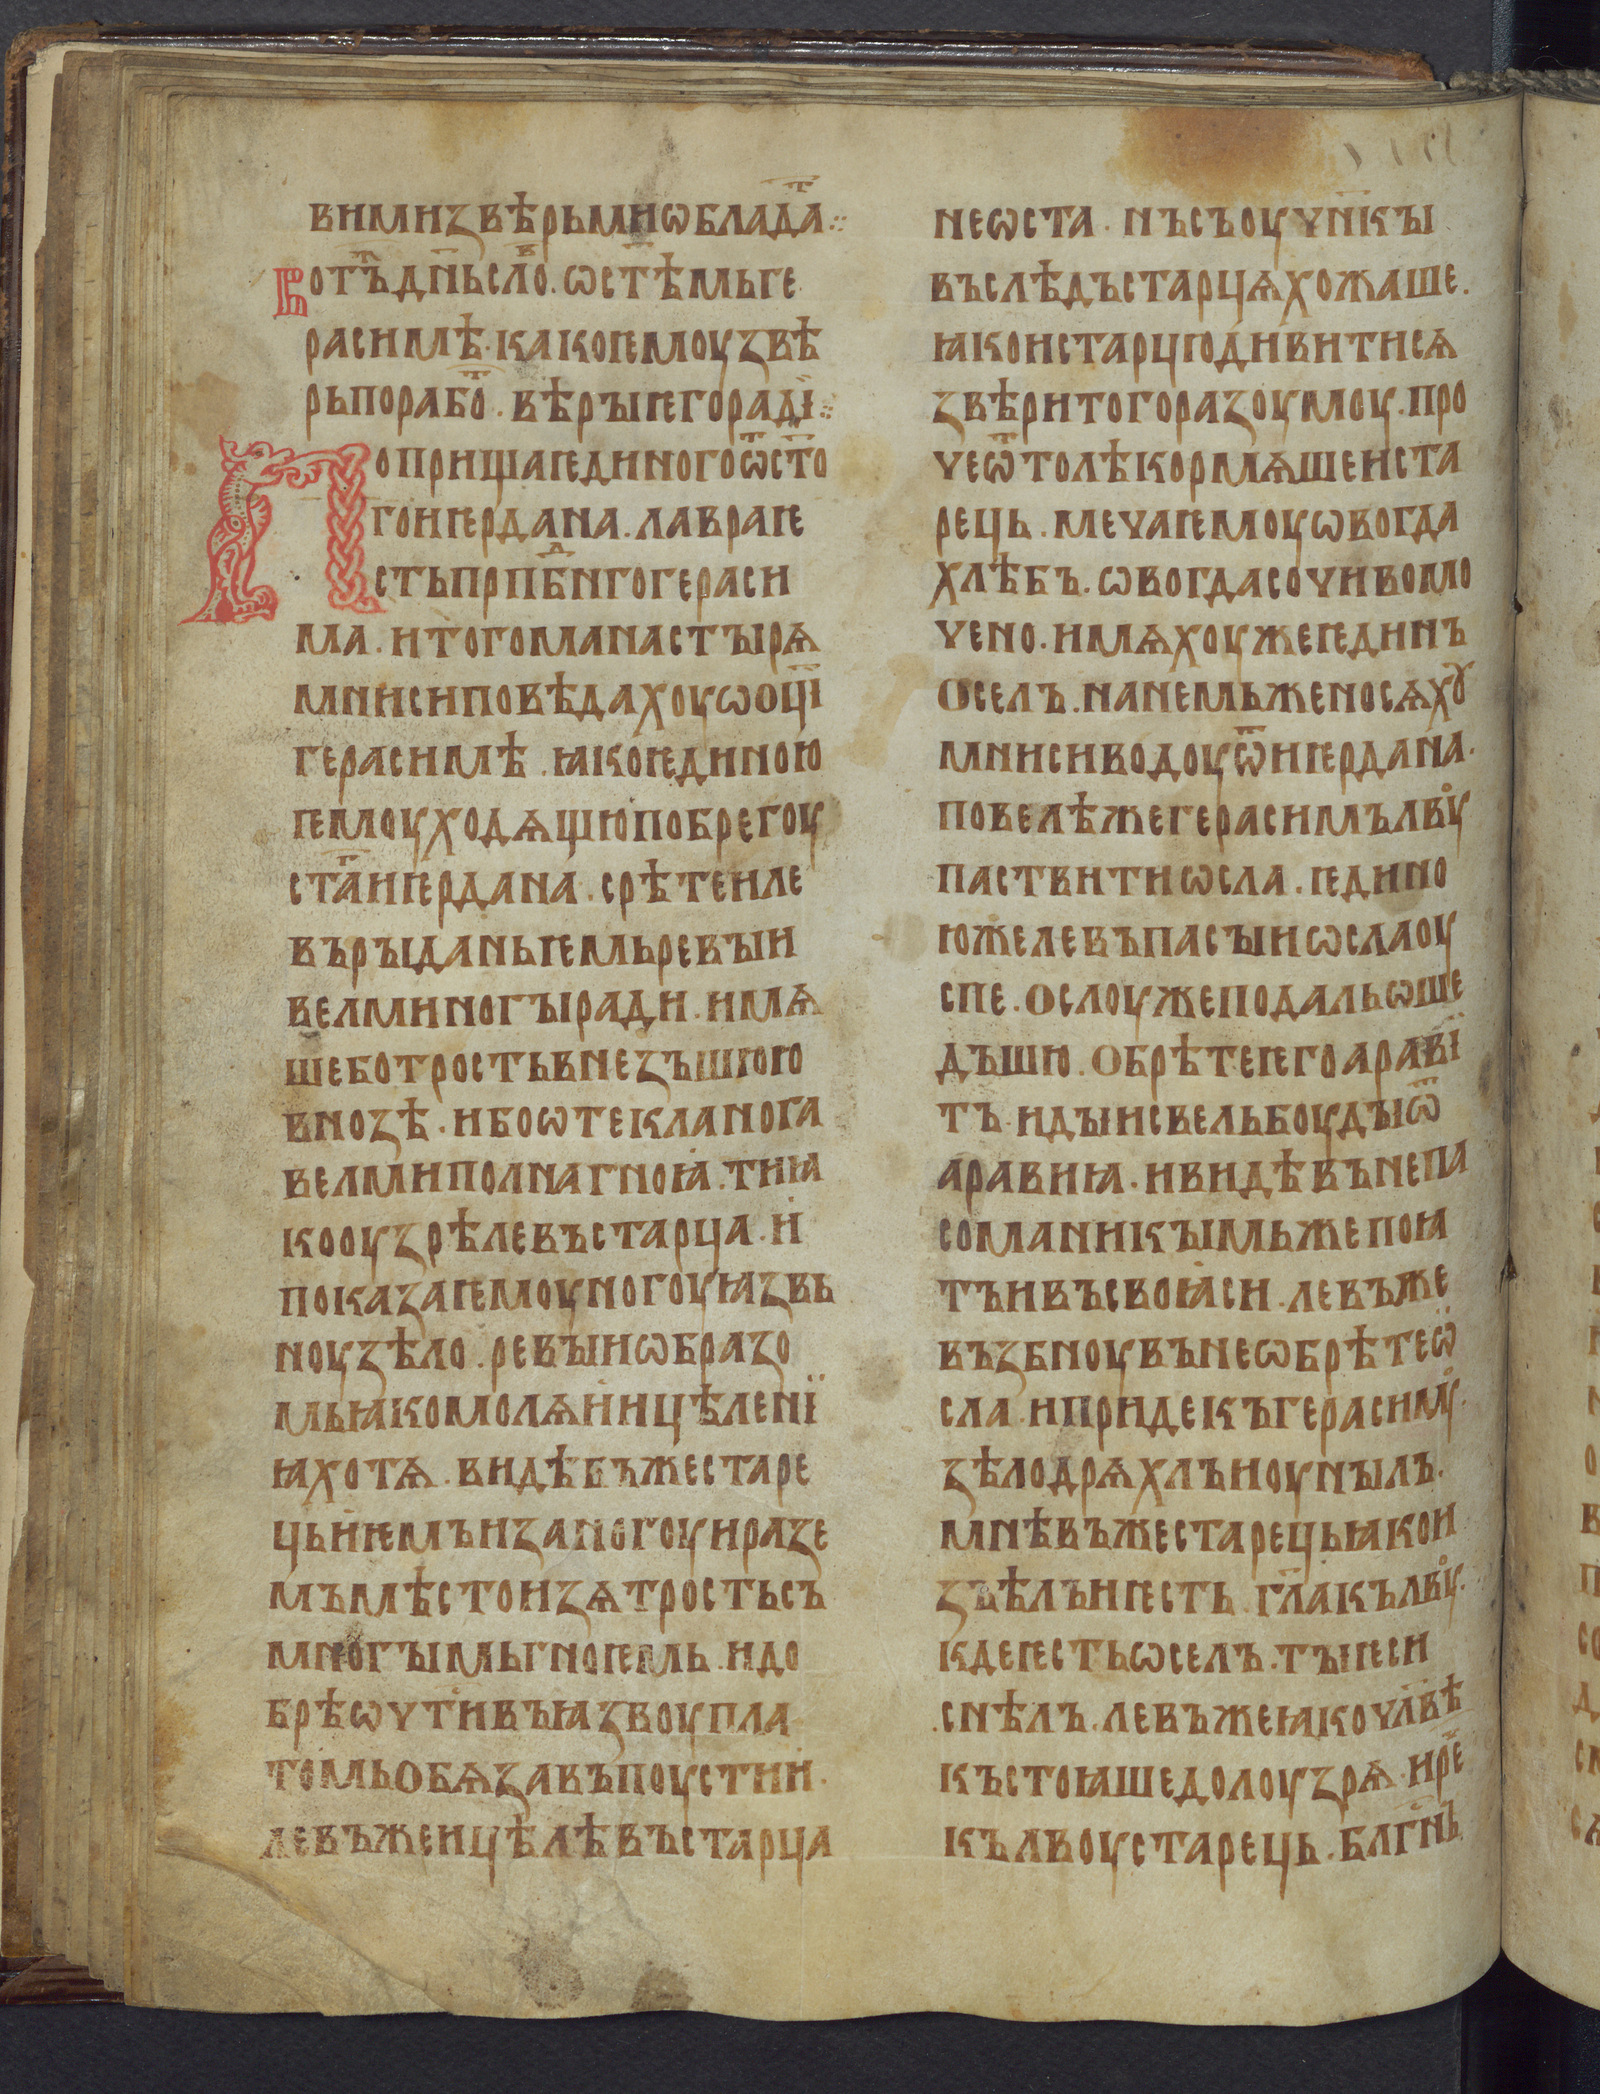 вимизвѣрьмиѡблада҃ⷮ·:
Вотъⷤдн҃ьслоⷡ҇.ѡст҃ѣмьге
расимѣ·какоѥмоузвѣ
рьпорабоⷮ.вѣрыѥгорадї·:
Поприщаѥдиногоѿст҃о
гоиѥрдана.лавраѥ
стьпрпⷣбнгогераси
ма.итогоманастырѧ
мнисиповѣдахоуѡоц҃ї
герасимѣ.ꙗкоѥдиною
ѥмоуходѧщюпобрегоу
ст҃аиѥрдана.срѣтеиле
въръıданьѥмьревыи
велминогыради.имѧ
шеботростьвнезъшюю
внозѣ.ибоѡтекланога
велмиполнагноꙗ.тиꙗ
кооузрѣлевъстарца.и
показаѥмоуногоуꙗзвь
ноузѣло.ревыиѡбразо
мьꙗкомолѧиицѣленї
ꙗхотѧ.видѣвъжестаре
цьиѥмъизаногоуиразе
мъмѣстоизѧтростьсъ
многымьгноѥмь.идо
брѣѡчтивъꙗзвоупла
томьобѧзавъпоустии.
левъжеицѣлѣвъстарца
неѡста.нъсъоучн҃кы
въслѣдъстарцѧхожаше.
ꙗкоистарцюдивитисѧ
звѣритогоразоумоу.про
чеѿтолѣкормѧшеиста
рець.мечаѥмоуѡвогда
хлѣбъ.ѡвогдасочивомо
чено.имѧхоужеѥдинъ
оселъ.нанемьженосѧхꙋ
мнисиводоуѿиѥрдана.
повелѣжегерасимълвꙋ
паствитиѡсла.ѥдино
южелевъпасыиѡслаоу
спе.ослоужеподальѡше
дъшю.обрѣтеѥгоаравї
тъ.идыисвельбоудыѿ
аравиꙗ.ивидѣвънепа
соманикымьжепоꙗ
тъивъсвоꙗси.левъже
възбноувънеѡбрѣтеѡ
сла.ипридекъгерасимꙋ.
зѣлодрѧхлъиоунылъ.
мнѣвъжестарецьꙗкои
звѣлъиѥсть.гл҃акълвꙋ.
кдеѥстьѡселъ.тыѥси
снѣлъ.левъжеꙗкочл҃вѣ
къстоꙗшедолоузрѧ.ирⷱ҇е
кълвоустарець.блг҃нъ